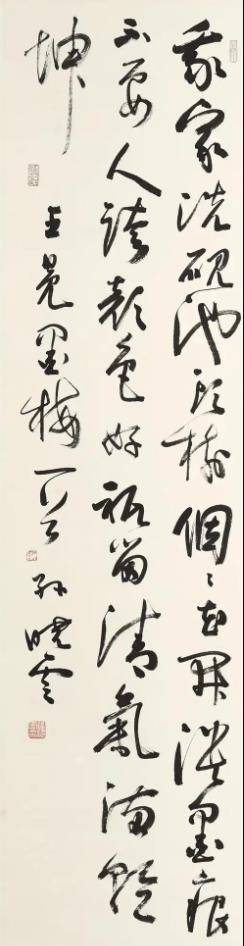 我家洗硯池頭樹個々花開淡墨痕
不要人誇顏色好祇留清氣滿乾
坤
王冕墨梅一首 孫曉雲